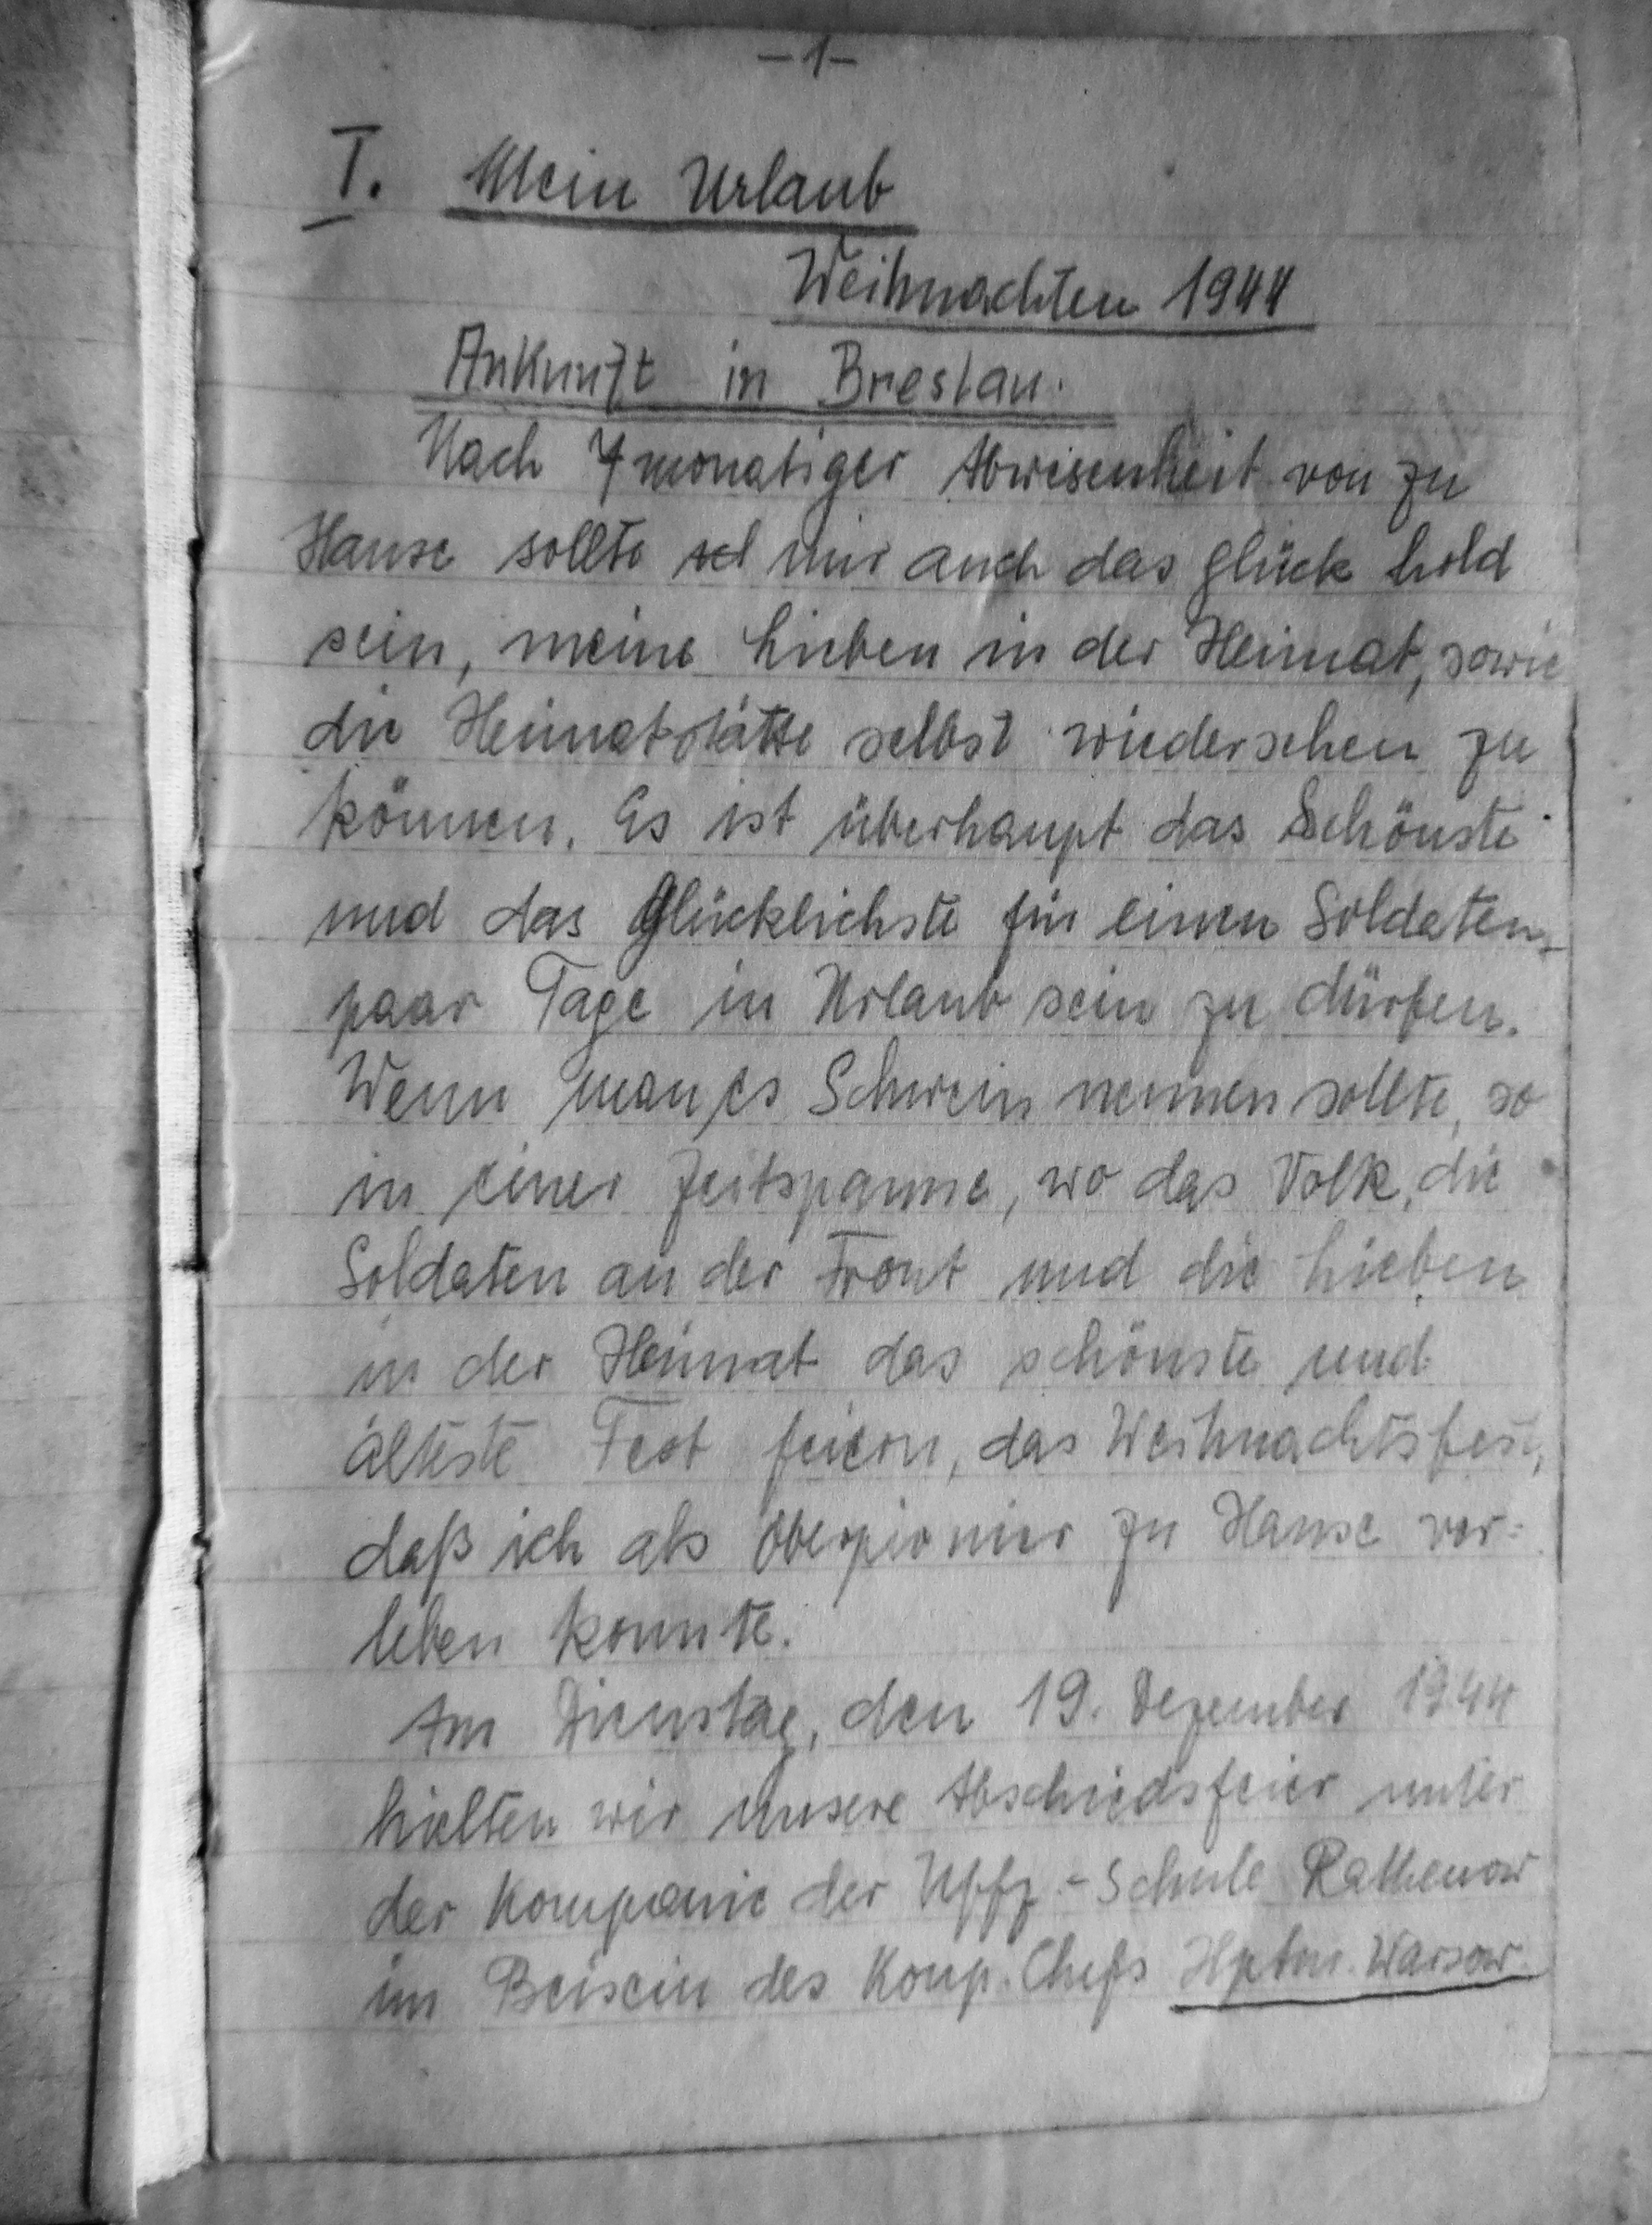 - 1 -
I. Mein Urlaub
Weihnachten 1944
Ankunft in Breslau.
Nach 7 monatiger Abwesenheit von zu
Hause sollte mir auch das Glück hold
sein, meine Lieben in der Heimat, sowie
die Heimatstätte selbst wiedersehen zu
können. Es ist überhaupt das Schönste
und das Glücklichste für einen Soldaten,
paar Tage in Urlaub sein zu dürfen.
Wenn man es Schwein nennen sollte, so
in einer Zeitspanne, wo das Volk, die
Soldaten an der Front und die Lieben
in der Heimat das schönste und
älteste Fest feiern, das Weihnachtsfest,
daß ich als Oberpionier zu Hause ver=
leben konnte.
Am Dienstag, den 19. Dezember 1944
hielten wir unsere Abschiedsfeier unter
der Kompanie der Uffz.-Schule Rathenow
im Beisein des Komp. Chefs Hptm. Warsow.